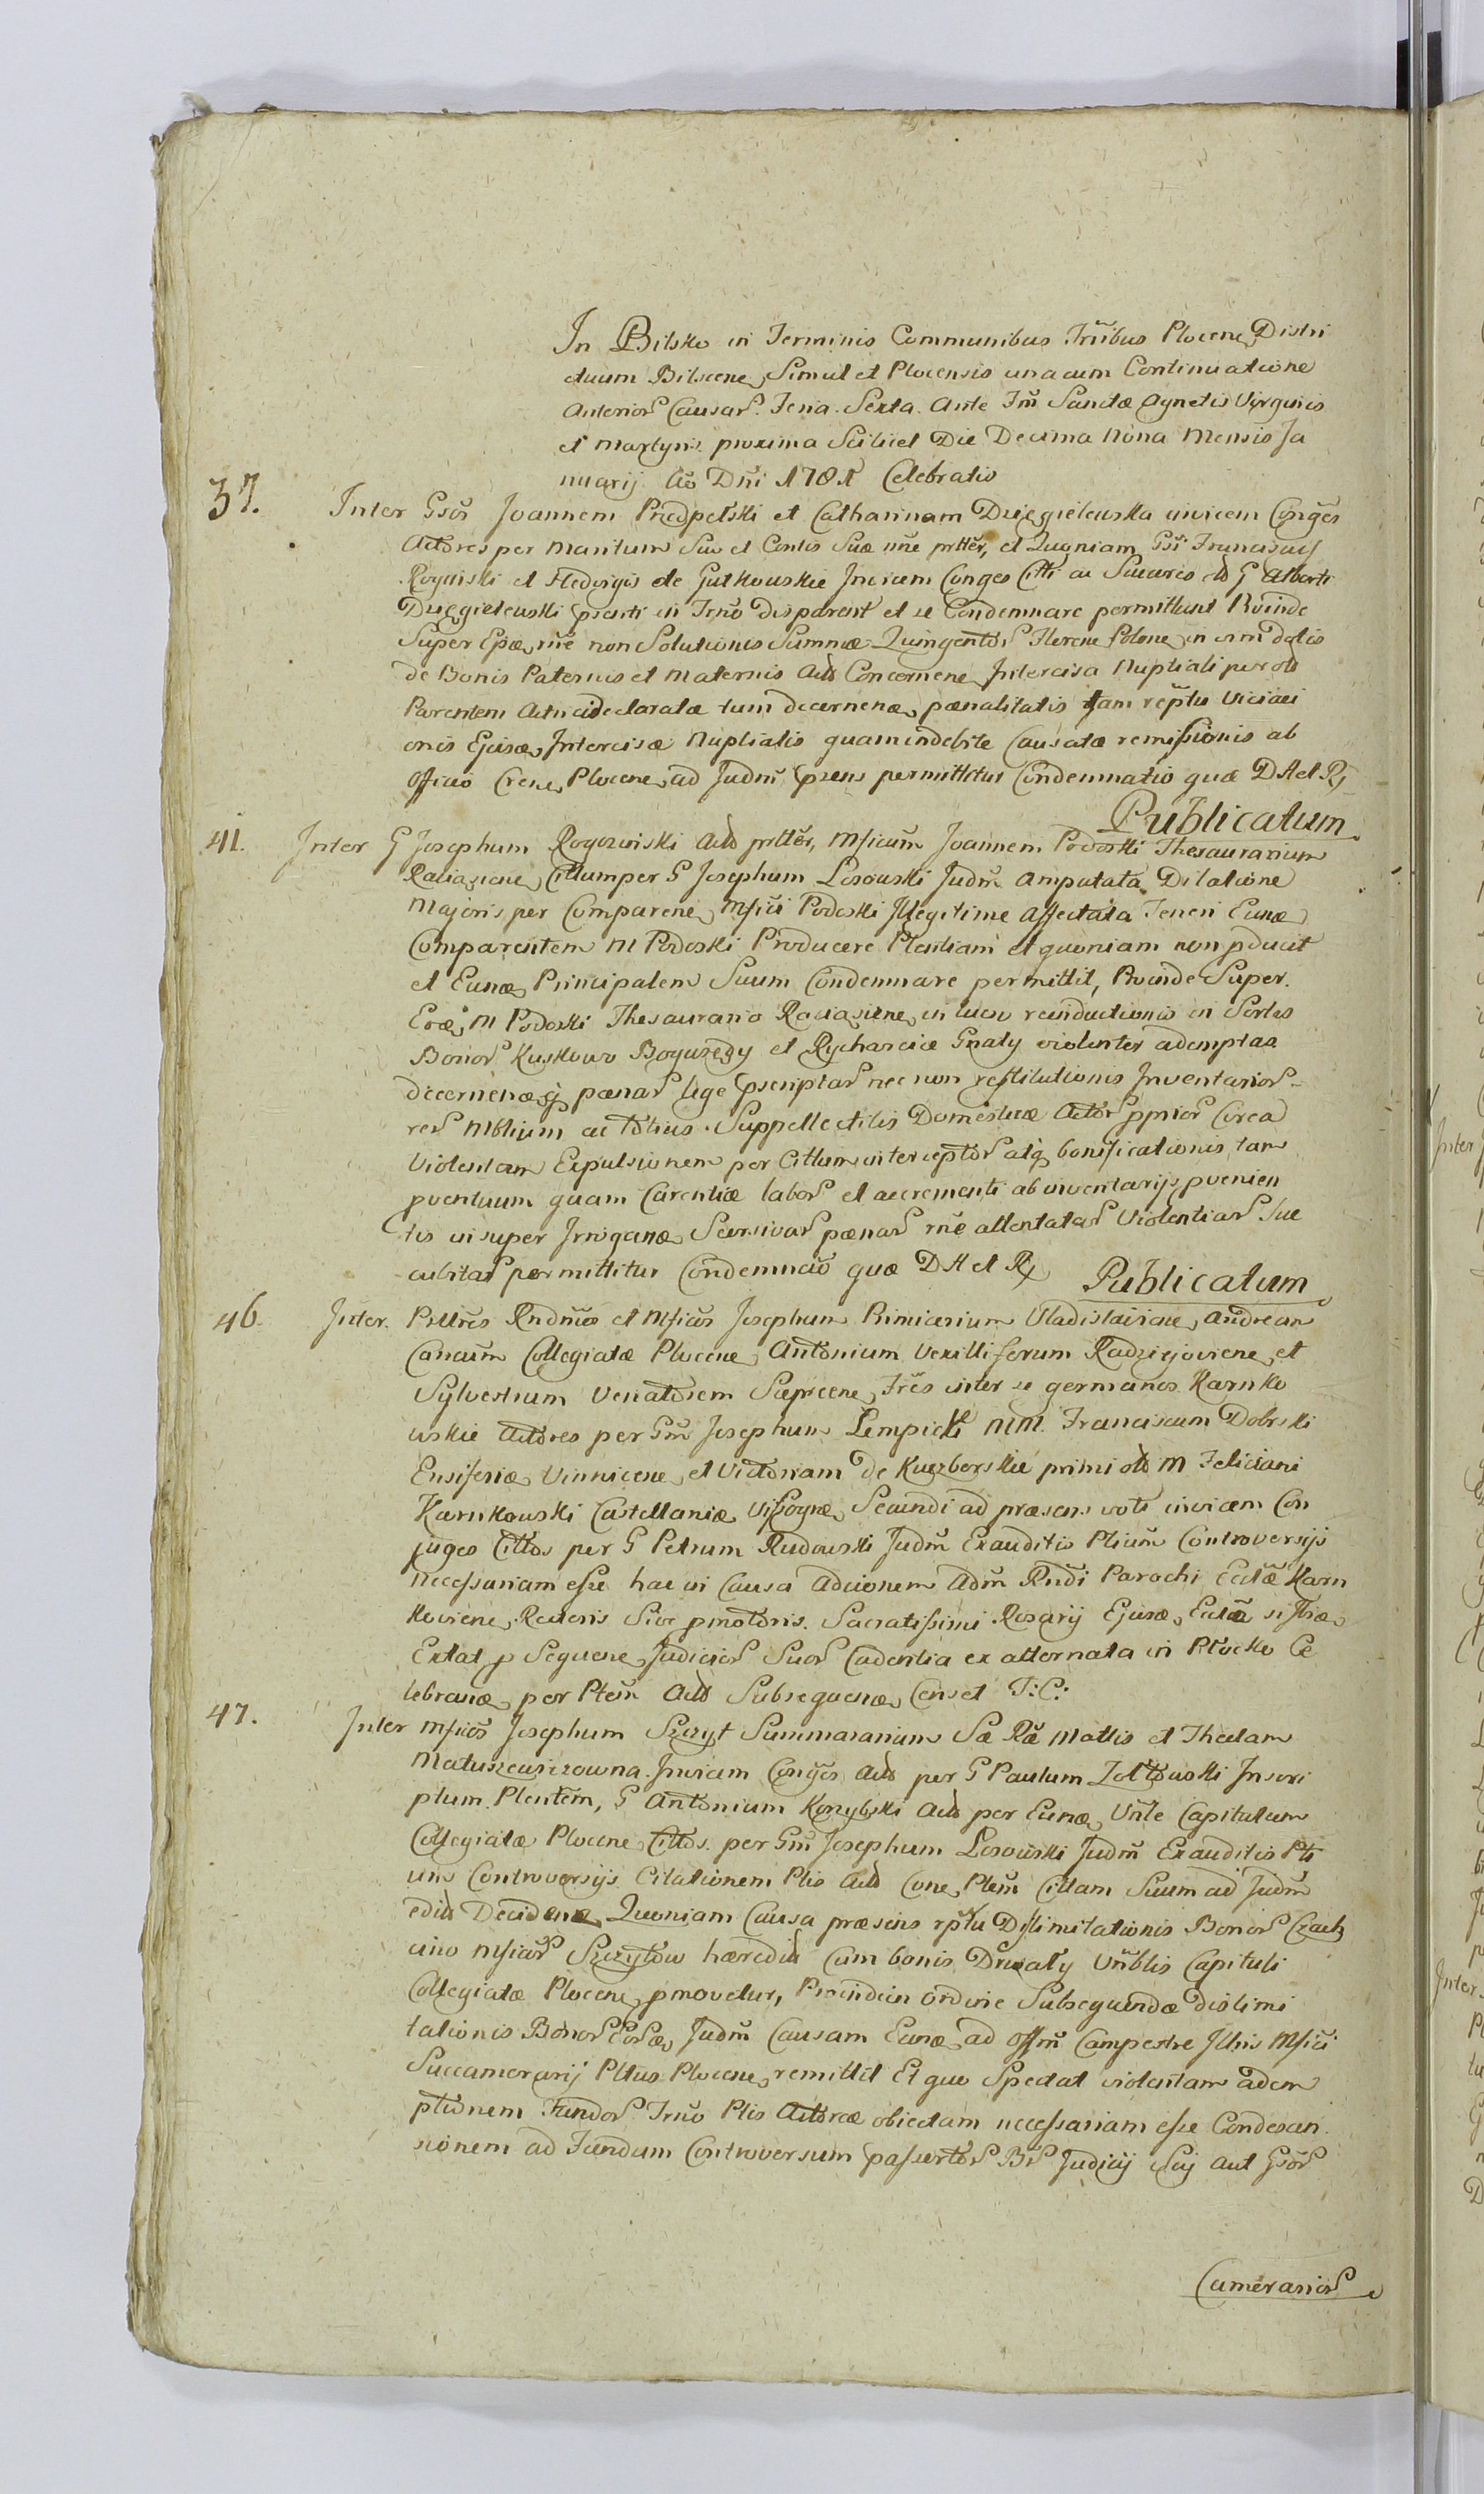 In Bilsko in Terminis Communibus Trribus Plocens Distri
ctuum Bilscens Simul et Plocensis una cum Continuatione
Anterior Causar. Feria Sexta Ante Fm Sanctæ Agnetis Virginis
et Martyris proxima Scilicet Die Decima Nona Mensis Ja
nuarij Ao Dni 1781 Celebratis
37. Inter Gsos Joannem Przedpełski et Catharinam Dzięgielewska invicem Conges
Actores per Maritum Suo et Contis Suæ nne prtter, et Quoniam Gsi Franciscus
Rogoiski et Hedvigis de Gutkowskie Invicem Conges Citti ac G Alberti
Dzięgielewski psenti in Trno disparent et se Condemnare permittunt Proinde
Super Epæ rne non Solutionis Summæ Quingentor Florenor Polone in vim dotis
de Bonis Paternis et Maternis Act Concernens Intercisa Nuptiali per olb
Parentem declaratæ tum decernenæ pænalitatis tam rsptu
onis Ejusæ Intercisæ Nuptialis quam indebite Causatæ remissionis ab
Officio Crens Plocens ad Judm psens permittitur Condemnatio quæ DA et R
Publicatum
41. Inter G Josephum Rogowiski Act prtter, Mficum Joannem Podoski Thesaurarium
Raciazens Cittum per G Josephum Losowski Judm Amputata Dilatione
Majoris per Comparens Mfici Podoski Illegitime Affectata Teneri Eunæ
Comparentem M Podoski Producere Plentiam et quoniam non pducit
et Eunæ Principalem Suum Condemnare permittit, Proinde Super
Eoæ M Podoski Thesaurario Raciazens in reinductionis in Sortes
Bonor Kuskowo Bogurzędy et Rycharcice Gnaty violenter ademptas
decernenæq pænar lege pscriptar nec non restitutionis Inventarior
rer Mblium ac totius Suppellectilis Domesticæ Actor pprior Circa
Violentam Expulsionem per Cittum interceptor atq bonificationis tam
pventuum quam Carentiæ labor et accrementi ab inventarijs pvenien
tis insuper Irrogenæ pænar rne attentatar Violentiar Suc
cubitar permittitur Condemnatio quæ DA et R Publicatum
46. Inter Prllres Rndmos et Mficos Josephum Primicerium Vladislaviens Andream
Cancum Collegiatæ Plocens Antonium Vexilliferum Radziejoviens et
Sylvestrum Venatorem Sierpcens Frres inter se germanos Karnko
wskie Actores per Gm Josephum Lempicki MM. Franciscum Dobrski
Ensiferiæ Vinnicens et Victoriam de Kuczborskie primi olb M Feliciani
Karnkowski Castellaniæ Vissognæ Secundi ad præsens voti invicem Con
juges Cittos per G Petrum Rudowski Judm Exauditis Ptium Controversijs
necessariam esse hac in Causa Adcionem Adm Rndi Parochi Ecclæ Karn
koviens Rectoris Sive pmotoris Sacratissimi Rosarij Ejusæ Ecclæ
Extat p Sequens Judicior Suor Cadentia ex alternata in Płocko Ce
lebranæ per Ptem Act Subsequenæ Censet T: C:
47. Inter Mficos Josephum Szczyt Summararium Sæ Ræ Mattis et Theclam
Matuszewiczowna Invicem Conges Act per G Paulum Zołtowski Inscri
ptum Plentem, G Antonium Act per Eunæ Vnle Capitulum
Collegiatæ Plocens Cittos per Gm Josephum Losowski Judm Exauditis Pti
um Controversijs Citationem Ptis Act Cone Ptem Cittam Suum ad Judm
edit Decidenæ Quoniam Causa præsens rptu Dislimitationis Bonor
cino Mficor Szczytow hæredit Cum bonis Drwały Vnblis Capituli
Collegiatæ Plocens pmovetur, Proinde in ordine Subsequendæ dislimi
tationis Bonor Eoræ Judm Causam Eanæ ad Offm Campestre Illris Mfici
Succamerarij Pltus Plocens remittit Et quo Spectat violentam adem
ptionem Fundor Trno Ptis Actoreæ obiectam necessariam esse Condescen
sionem ad Fundum Controversum passertor Br Judicij Scij aut Gsor
Camerarior